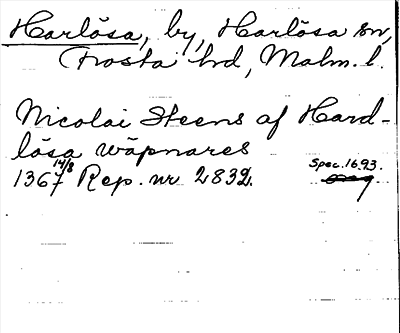 Harlösa, by, Harlösa sn,
Frosta hd, Malm. l.
Nicolai Steens af Hard-
lösa wäpnares
1367 14/8 Rep. nr 2832.
Spec. 1693.